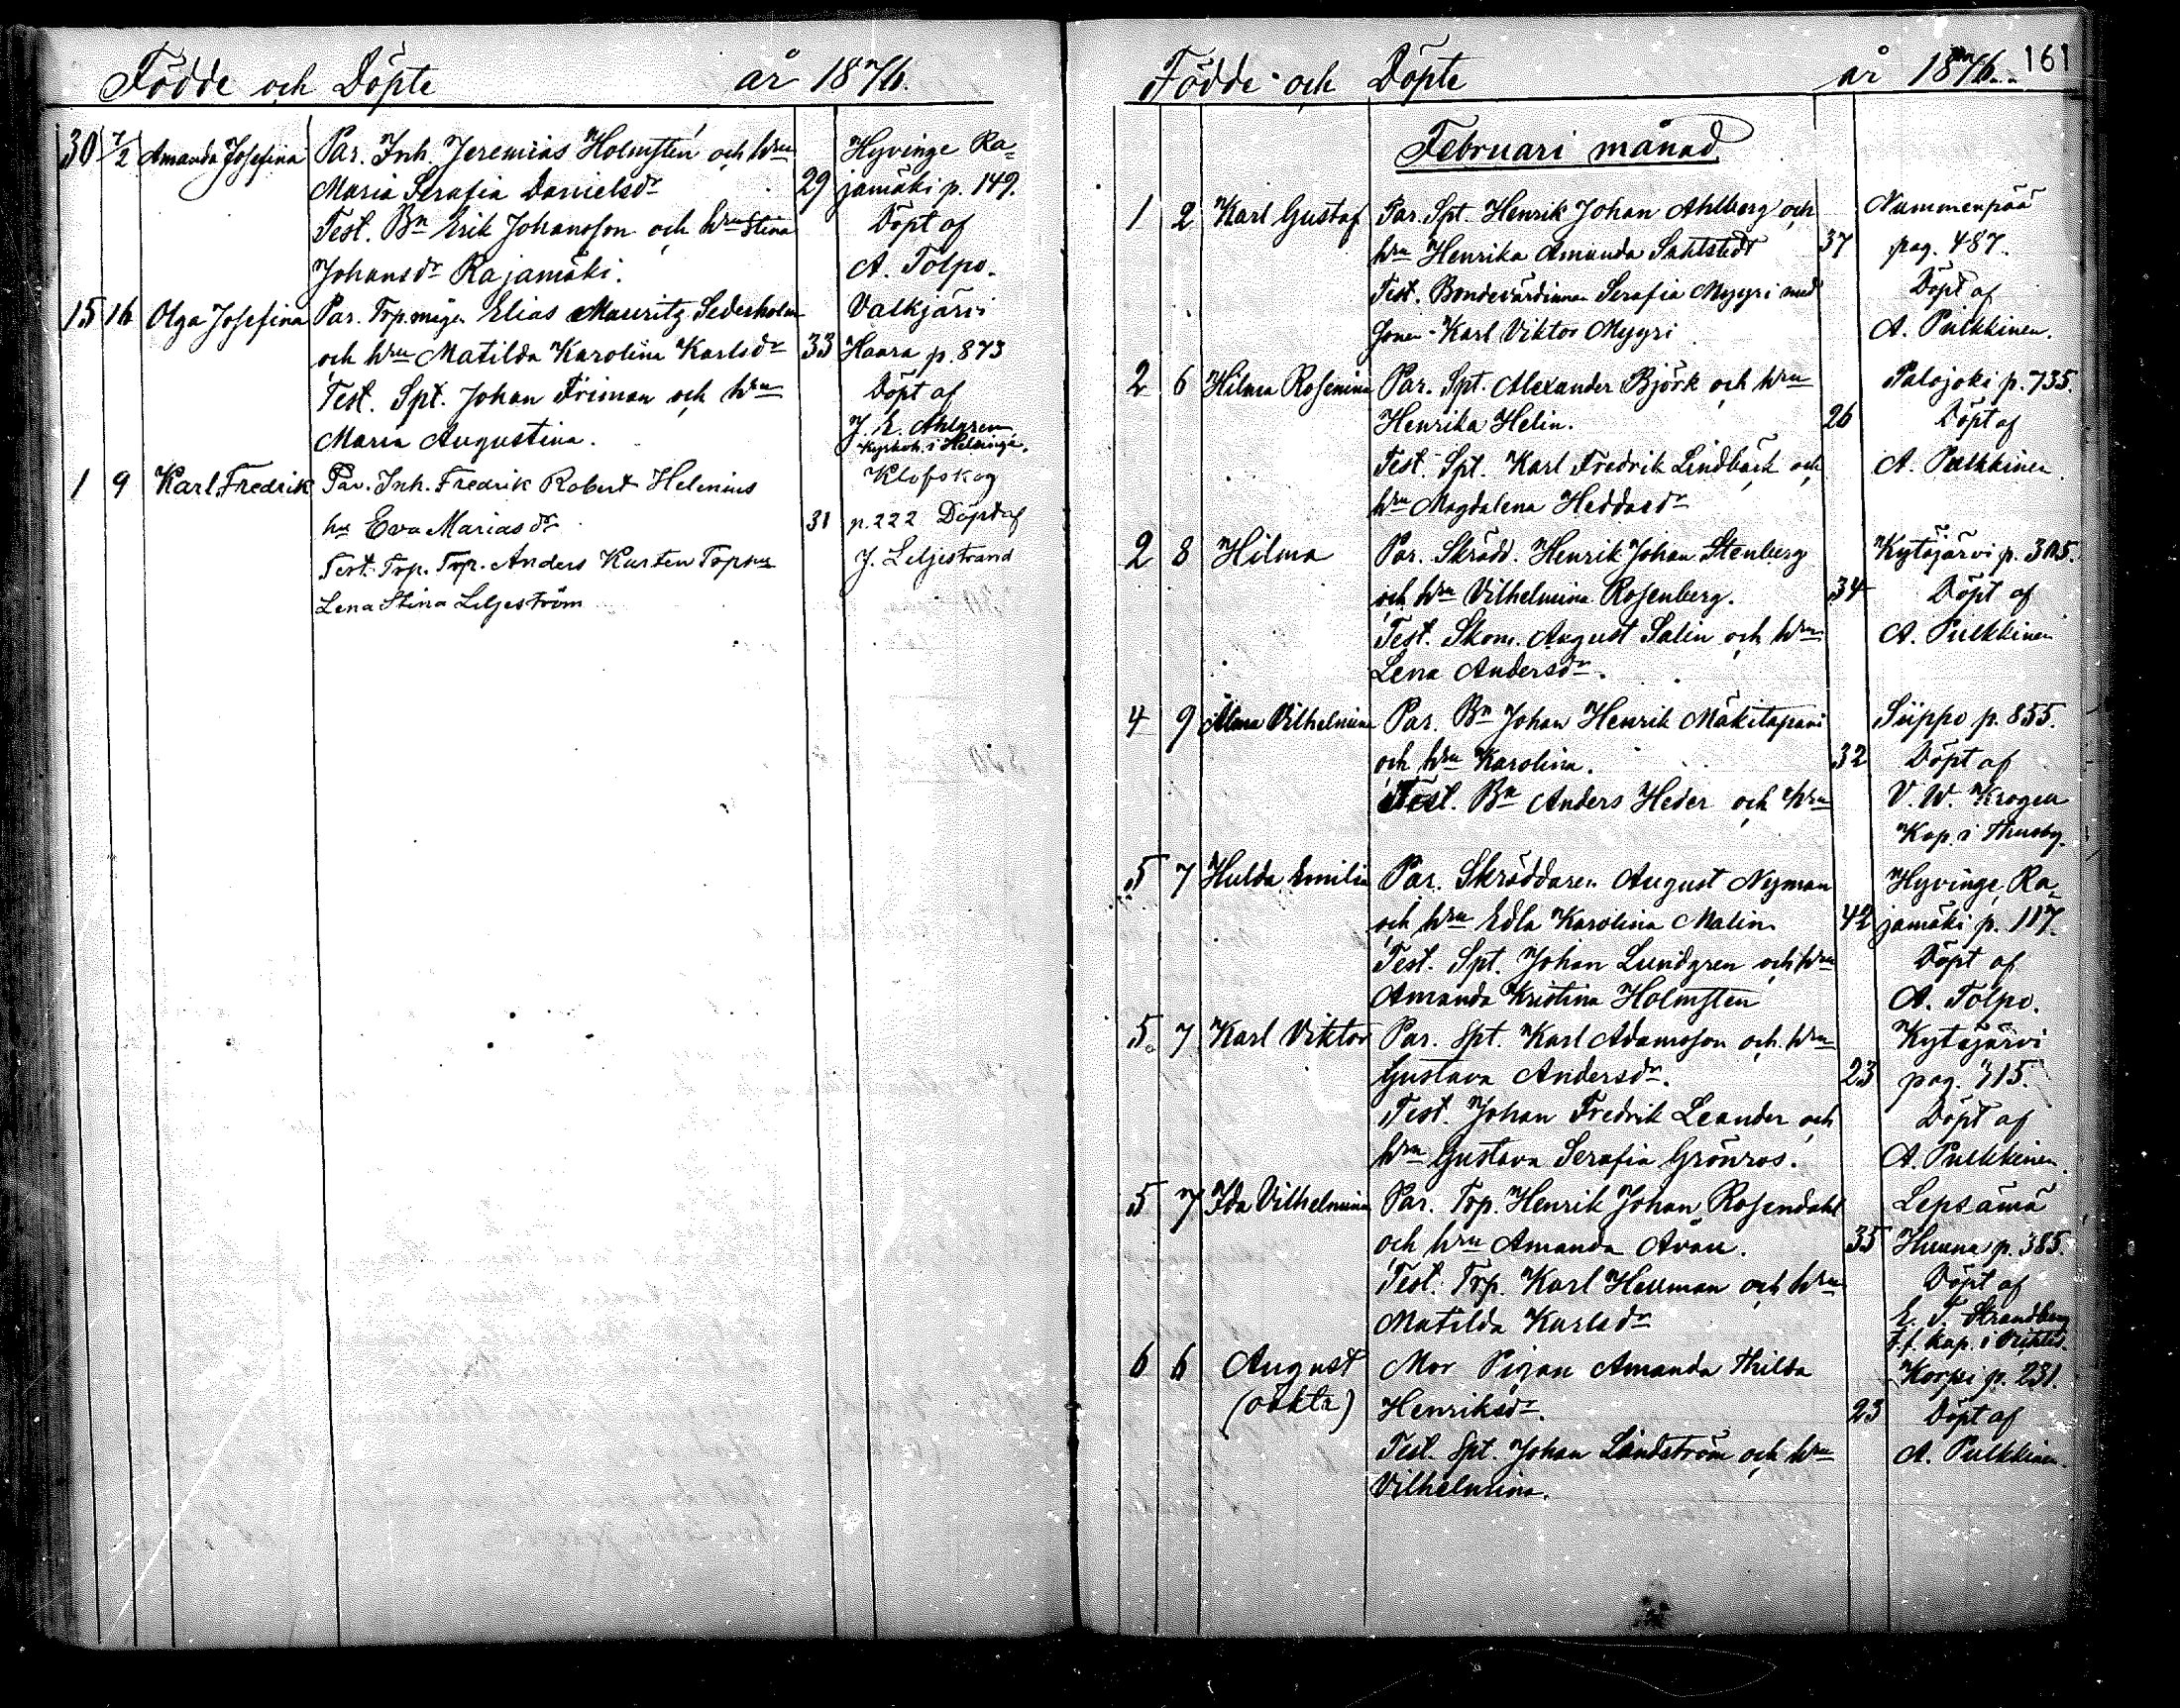 Födde och Döpte år 1876.
30 7/2 Amanda Josefina Par. Inh. Jeremias Holmstén och hru Hyvinge Ra-
Maria Serafia Danielsdr 29 jamäki p. 149.
Test. Bn Erik Johansson och hru Stina Döpt af
Johansdr Rajamäki. A. Tolpo.
15 16 Olga Josefina Par. Trp.måg. Elias Mauritz Sederholm Valkjärvi
och hru Matilda Karolina Karlsdr 33 Haara p. 873
Test. Spt. Johan Friman och hru Döpt af
Maria Augustina. J. E. Ahlgren
Kyrkoh. i Helsinge.
1 9 Karl Fredrik Par. Inh. Fredrik Robert Helenius Klofskog
hu Eva Mariasdr 31 p. 222 Döpt af
Test. Trp. Trp. Anders Karsten Topp J. Liljestrand
Lena Stina Liljeström
Födde och Döpte år 1876. 161
Februari månad
1 2 Karl Gustaf Par. Spt. Henrik Johan Ahlberg och Nummenpää
hru Henrika Amanda Sahlstedt 37 pag. 487.
Test. Bondevärdinnan Serafia Myyri med Döpt af
Sonen Karl Viktor Myyri A. Pulkkinen.
2 6 Hilma Rosenina Par. Spt. Alexander Björk och hru Palojoki p. 735.
Henrika Helin. 26 Döpt af
Test. Spt. Karl Fredrik Lindbäck och A. Pulkkinen
hru Magdalena Heddasdr
2 8 Hilma Par. Skrädd. Henrik Johan Stenberg Kytäjärvi p. 305.
och hru Vilhelmina Rosenberg. 34 Döpt af
Test. Skom. August Salin och hru A. Pulkkinen
Lena Andersdr.
4 9 Alma Vilhelmina Par. Bn Johan Henrik Mäkitapani Siippo p. 855.
och hru Karolina. 32 Döpt af
Test. Bn Anders Heder och hru V. W. Krogen
Kap. i Thusby.
5 7 Hulda Emilia Par. Skräddaren August Nyman Hyvinge Ra-
och hru Edla Karolina Malin 42 jamäki p. 117.
Test. Spt. Johan Lundgren och hru Döpt af
Amanda Kristina Holmsten A. Tolpo.
5. 7 Karl Viktor Par. Spt. Karl Adamsson och hru Kytäjärvi
Gustava Andersdr. 23 pag. 315.
Test. Johan Fredrik Leander och Döpt af
hru Gustava Serafia Grönros. A. Pulkkinen.
5 7 Ida Vilhelmina Par. Trp. Henrik Johan Rosendahl Lepsämä
och hru Amanda Avän. 35 p. 385.
Test. Trp. Karl Herman och hru Döpt af
Matilda Karlsdr E. T. Strandberg
F.f. kap. i
6 6 August Mor Pigan Amanda Thilda Korpi p. 231.
(oäkta) Henriksdr. 23 Döpt af
Test. Spt. Johan Lindström och hru A. Pulkkinen.
Vilhelmina.